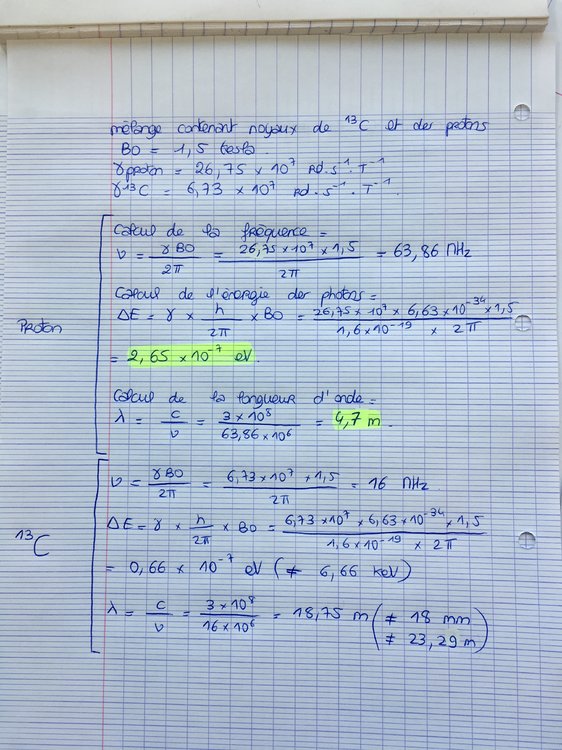 mélange contenant noyaux de ¹³C et des protons
B0 = 1,5 tesla
γproton = 26,75 × 10⁷ rd.s⁻¹.T⁻¹
γ¹³C = 6,73 × 10⁷ rd.s⁻¹.T⁻¹.
Proton
Calcul de la fréquence =
ν = γB0/2π = 26,75 × 10⁷ × 1,5/2π = 63,86 MHz
Calcul de l'énergie des photons =
ΔE = γ × h/2π × B0 = 26,75 × 10⁷ × 6,63 × 10⁻³⁴ × 1,5/1,6 × 10⁻¹⁹ × 2π
= 2,65 × 10⁻⁷ eV
Calcul de la longueur d'onde =
λ = c/ν = 3 × 10⁸/63,86 × 10⁶ = 4,7 m.
¹³C
ν = γB0/2π = 6,73 × 10⁷ × 1,5/2π = 16 MHz.
ΔE = γ × h/2π × B0 = 6,73 × 10⁷ × 6,63 × 10⁻³⁴ × 1,5/1,6 × 10⁻¹⁹ × 2π
= 0,66 × 10⁻⁷ eV (≠ 6,66 keV)
λ = c/ν = 3 × 10⁸/16 × 10⁶ = 18,75 m (≠ 18 mm
≠ 23,29 m)